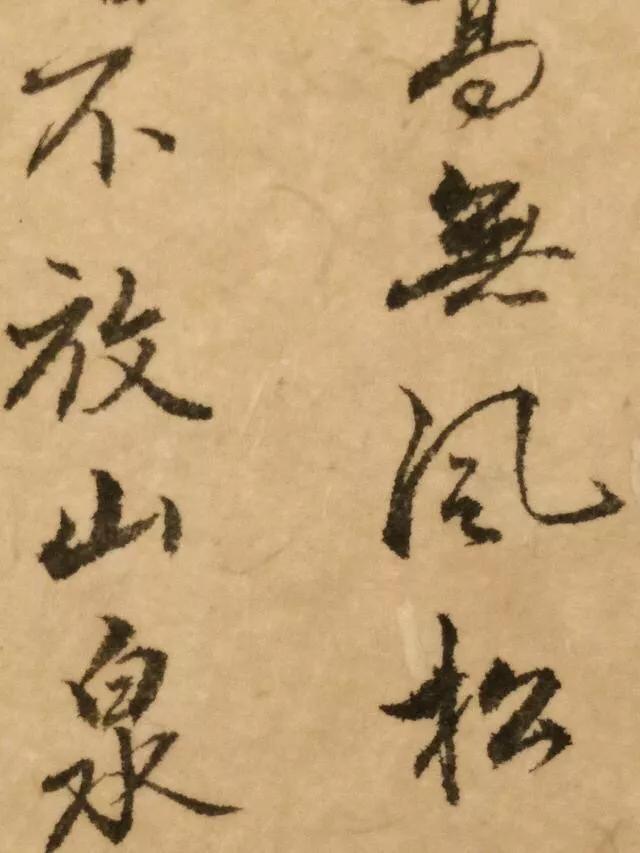 高無風松
不放山泉